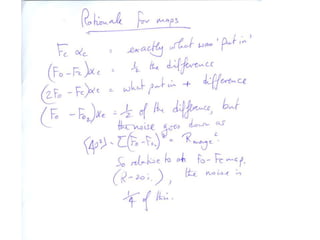 Rationale for maps
Fc αc : exactly what was 'put in'
(Fo - Fc)αc = ½ the difference
(2Fo - Fc)αc = what put in + difference
(Fo - Fo₂)αc = ½ of the difference, but
the noise goes down as
Σ(Fo - Fo₂)²
So relative to Fo - Fc map,
(R ~ 20%), the noise is
¼ of this.